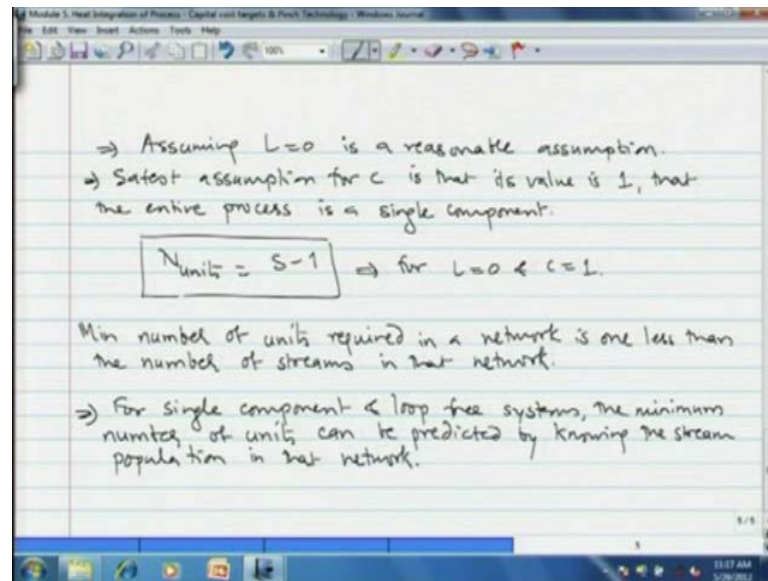 Module 5. Heat Integration of Process - Capital cost targets & Pinch Technology - Windows Journal
File Edit View Insert Actions Tools Help
100%
⇒ Assuming L=0 is a reasonable assumption.
⇒ Safest assumption for c is that its value is 1, that
the entire process is a single component.
Nunits = S-1 ⇒ for L=0 & C=1.
Min number of units required in a network is one less than
the number of streams in that network.
⇒ For single component & loop free systems, the minimum
number of units can be predicted by knowing the stream
population in that network.
5/5
5
11:17 AM
5/28/2012